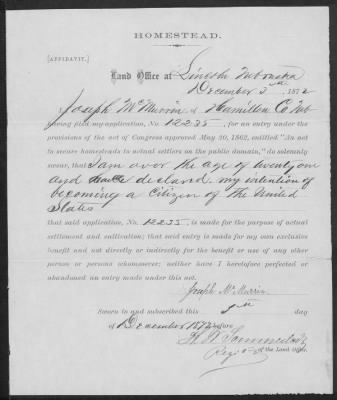 HOMESTEAD.
[AFFIDAVIT.]
Land Office at Lincoln Nebraska
December 5th, 1872
I, Joseph McMurrin of Hamilton Co Neb
having filed my application, No. 12235, for an entry under the
provisions of the act of Congress approved May 20, 1862, entitled "An act
to secure homesteads to actual settlers on the public domain," do solemnly
swear, that I am over the age of twenty one
and have declared my intention of
becoming a citizen of the United
States
that said application, No. 12235, is made for the purpose of actual
settlement and cultivation; that said entry is made for my own exclusive
benefit and not directly or indirectly for the benefit or use of any other
person or persons whomsoever; neither have I heretofore perfected or
abandoned an entry made under this act.
Joseph McMurrin
Sworn to and subscribed this 5th day
of December 1872 before
Register of the Land Office.